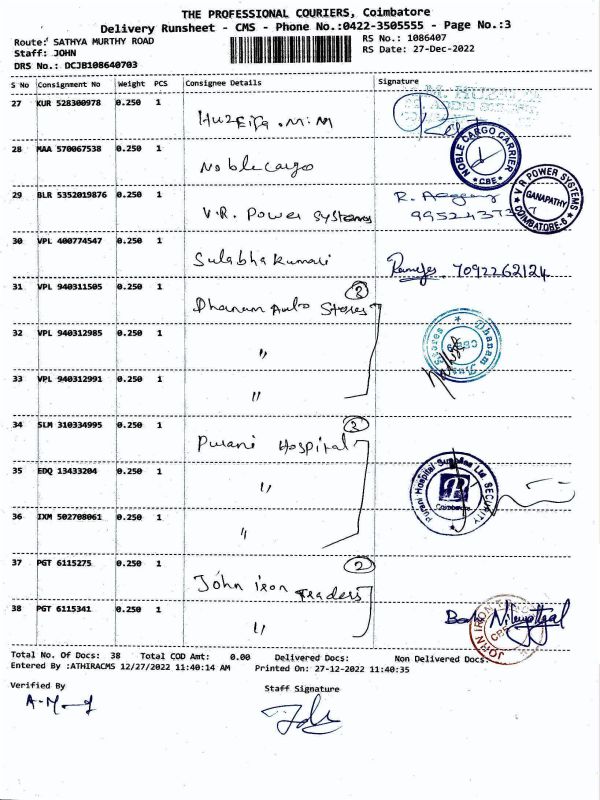 THE PROFESSIONAL COURIERS, Coimbatore
Delivery Runsheet - CMS - Phone No.:0422-3505555 - Page No.:3
Route: SATHYA MURTHY ROAD
RS No.: 1086407
Staff: JOHN
RS Date: 27-Dec-2022
DRS No.: DCJB108640703
S No Consignment No Weight PCS Consignee Details Signature
27 KUR 528300978 0.250 1 Huzeifa.M.M
28 MAA 570067538 0.250 1 Noble cargo
NOBLE CARGO CARRIER * CBE *
29 BLR 5352019876 0.250 1 V.R. Power Systems
V R POWER SYSTEMS GANAPATHY COIMBATORE-6
30 VPL 400774547 0.250 1 Sulabha kumari
7092262124
31 VPL 940311505 0.250 1 Dhanam Auto Stores
32 VPL 940312985 0.250 1 "
Dhanam Auto Stores
33 VPL 940312991 0.250 1 "
34 SLM 310334995 0.250 1 Purani Hospital
35 EDQ 13433204 0.250 1 "
Purani Hospital Supplies Ltd SECURITY Coimbatore
36 IXM 502708061 0.250 1 "
37 PGT 6115275 0.250 1 John iron Traders 2
38 PGT 6115341 0.250 1 "
JOHN IRON CBE
Total No. Of Docs: 38 Total COD Amt: 0.00 Delivered Docs: Non Delivered Docs:
Entered By :ATHIRACMS 12/27/2022 11:40:14 AM Printed On: 27-12-2022 11:40:35
Verified By
Staff Signature